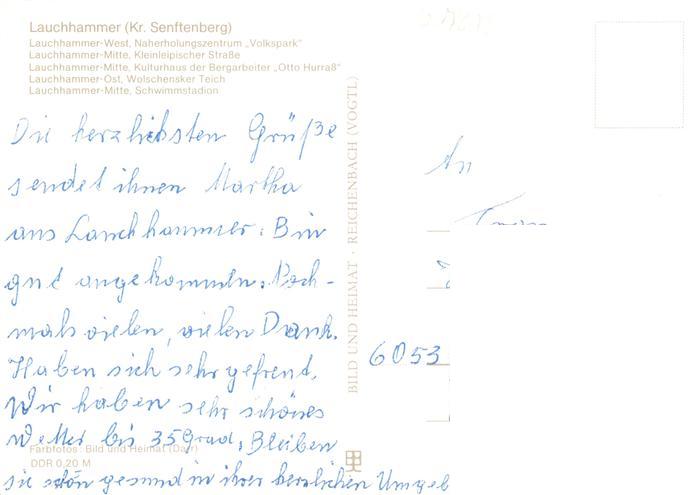 Lauchhammer (Kr. Senftenberg)
Lauchhammer-West, Naherholungszentrum „Volkspark"
Lauchhammer-Mitte, Kleinleipischer Straße
Lauchhammer-Mitte, Kulturhaus der Bergarbeiter „Otto Hurraß"
Lauchhammer-Ost, Wolschensker Teich
Lauchhammer-Mitte, Schwimmstadion
Die herzlichsten Grüße
sendet ihnen Martha
aus Lauchhammer. Bin
gut angekommen. Noch-
mals vielen, vielen Dank.
Haben sich sehr gefreut.
Wir haben sehr schönes
Wetter bis 35 Grad. Bleiben
sie schön gesund in ihrer herrlichen Umgeb
Farbfotos: Bild und Heimat (Darr)
DDR 0,20 M
BILD UND HEIMAT · REICHENBACH (VOGTL)
An
6053